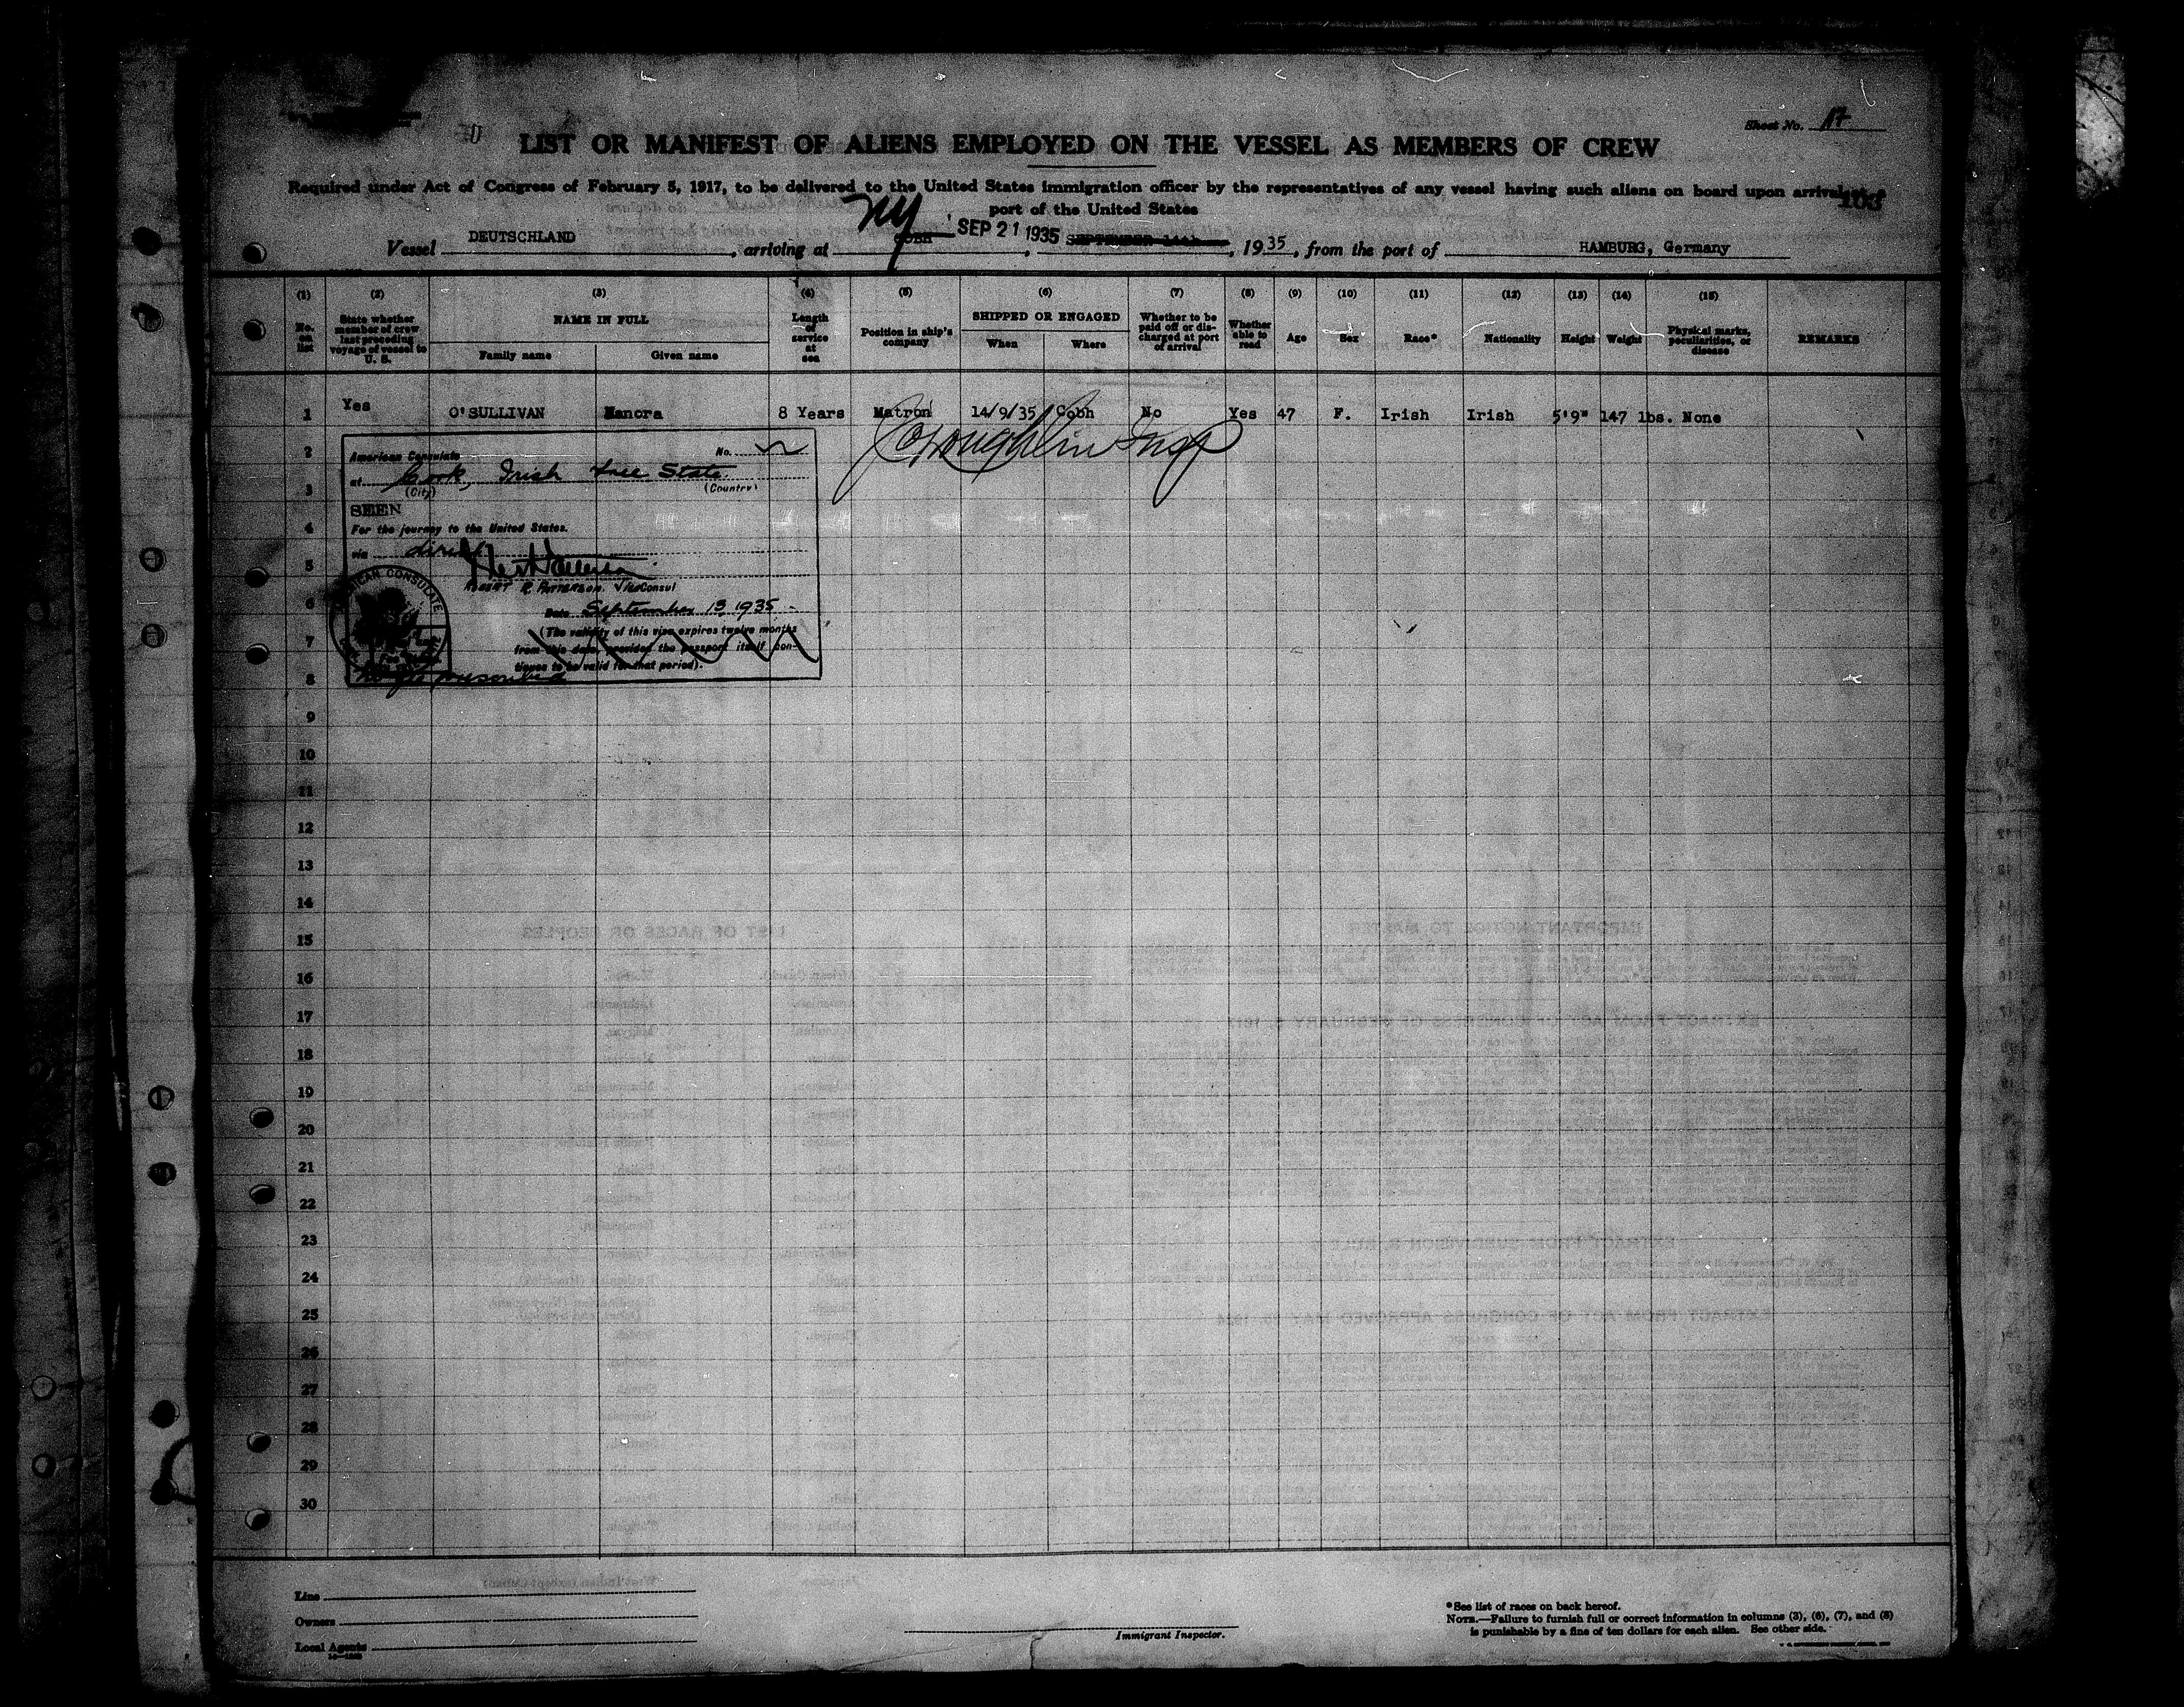 Sheet No. 17
LIST OR MANIFEST OF ALIENS EMPLOYED ON THE VESSEL AS MEMBERS OF CREW
Required under Act of Congress of February 5, 1917, to be delivered to the United States immigration officer by the representatives of any vessel having such aliens on board upon arrival at a
103
port of the United States
Vessel DEUTSCHLAND, arriving at COBH NY, SEP 21 1935 SEPTEMBER 14th, 1935, from the port of HAMBURG, Germany
(1) (2) (3) (4) (5) (6) (7) (8) (9) (10) (11) (12) (13) (14) (15)
No. on list
State whether member of crew last preceding voyage of vessel to U. S.
NAME IN FULL
Family name Given name
Length of service at sea
Position in ship's company
SHIPPED OR ENGAGED
When Where
Whether to be paid off or discharged at port of arrival
Whether able to read
Age
Sex
Race*
Nationality
Height
Weight
Physical marks, peculiarities, or disease
REMARKS
1 Yes O'SULLIVAN Hanora 8 Years Matron 14/9/35 Cobh No Yes 47 F. Irish Irish 5'9" 147 lbs. None
2
3
4
5
6
7
8
9
10
11
12
13
14
15
16
17
18
19
20
21
22
23
24
25
26
27
28
29
30
American Consulate No.
at Cork, Irish Free State
(City) (Country)
SEEN
For the journey to the United States.
via direct
ROBERT R. PATTERSON Vice Consul
Date September 13, 1935
(The validity of this visa expires twelve months
from this date, provided the passport itself con-
tinues to be valid for that period).
AMERICAN CONSULATE
No fee prescribed
Line
Owners
Local Agents
Immigrant Inspector.
*See list of races on back hereof.
NOTE.—Failure to furnish full or correct information in columns (3), (6), (7), and (8)
is punishable by a fine of ten dollars for each alien. See other side.